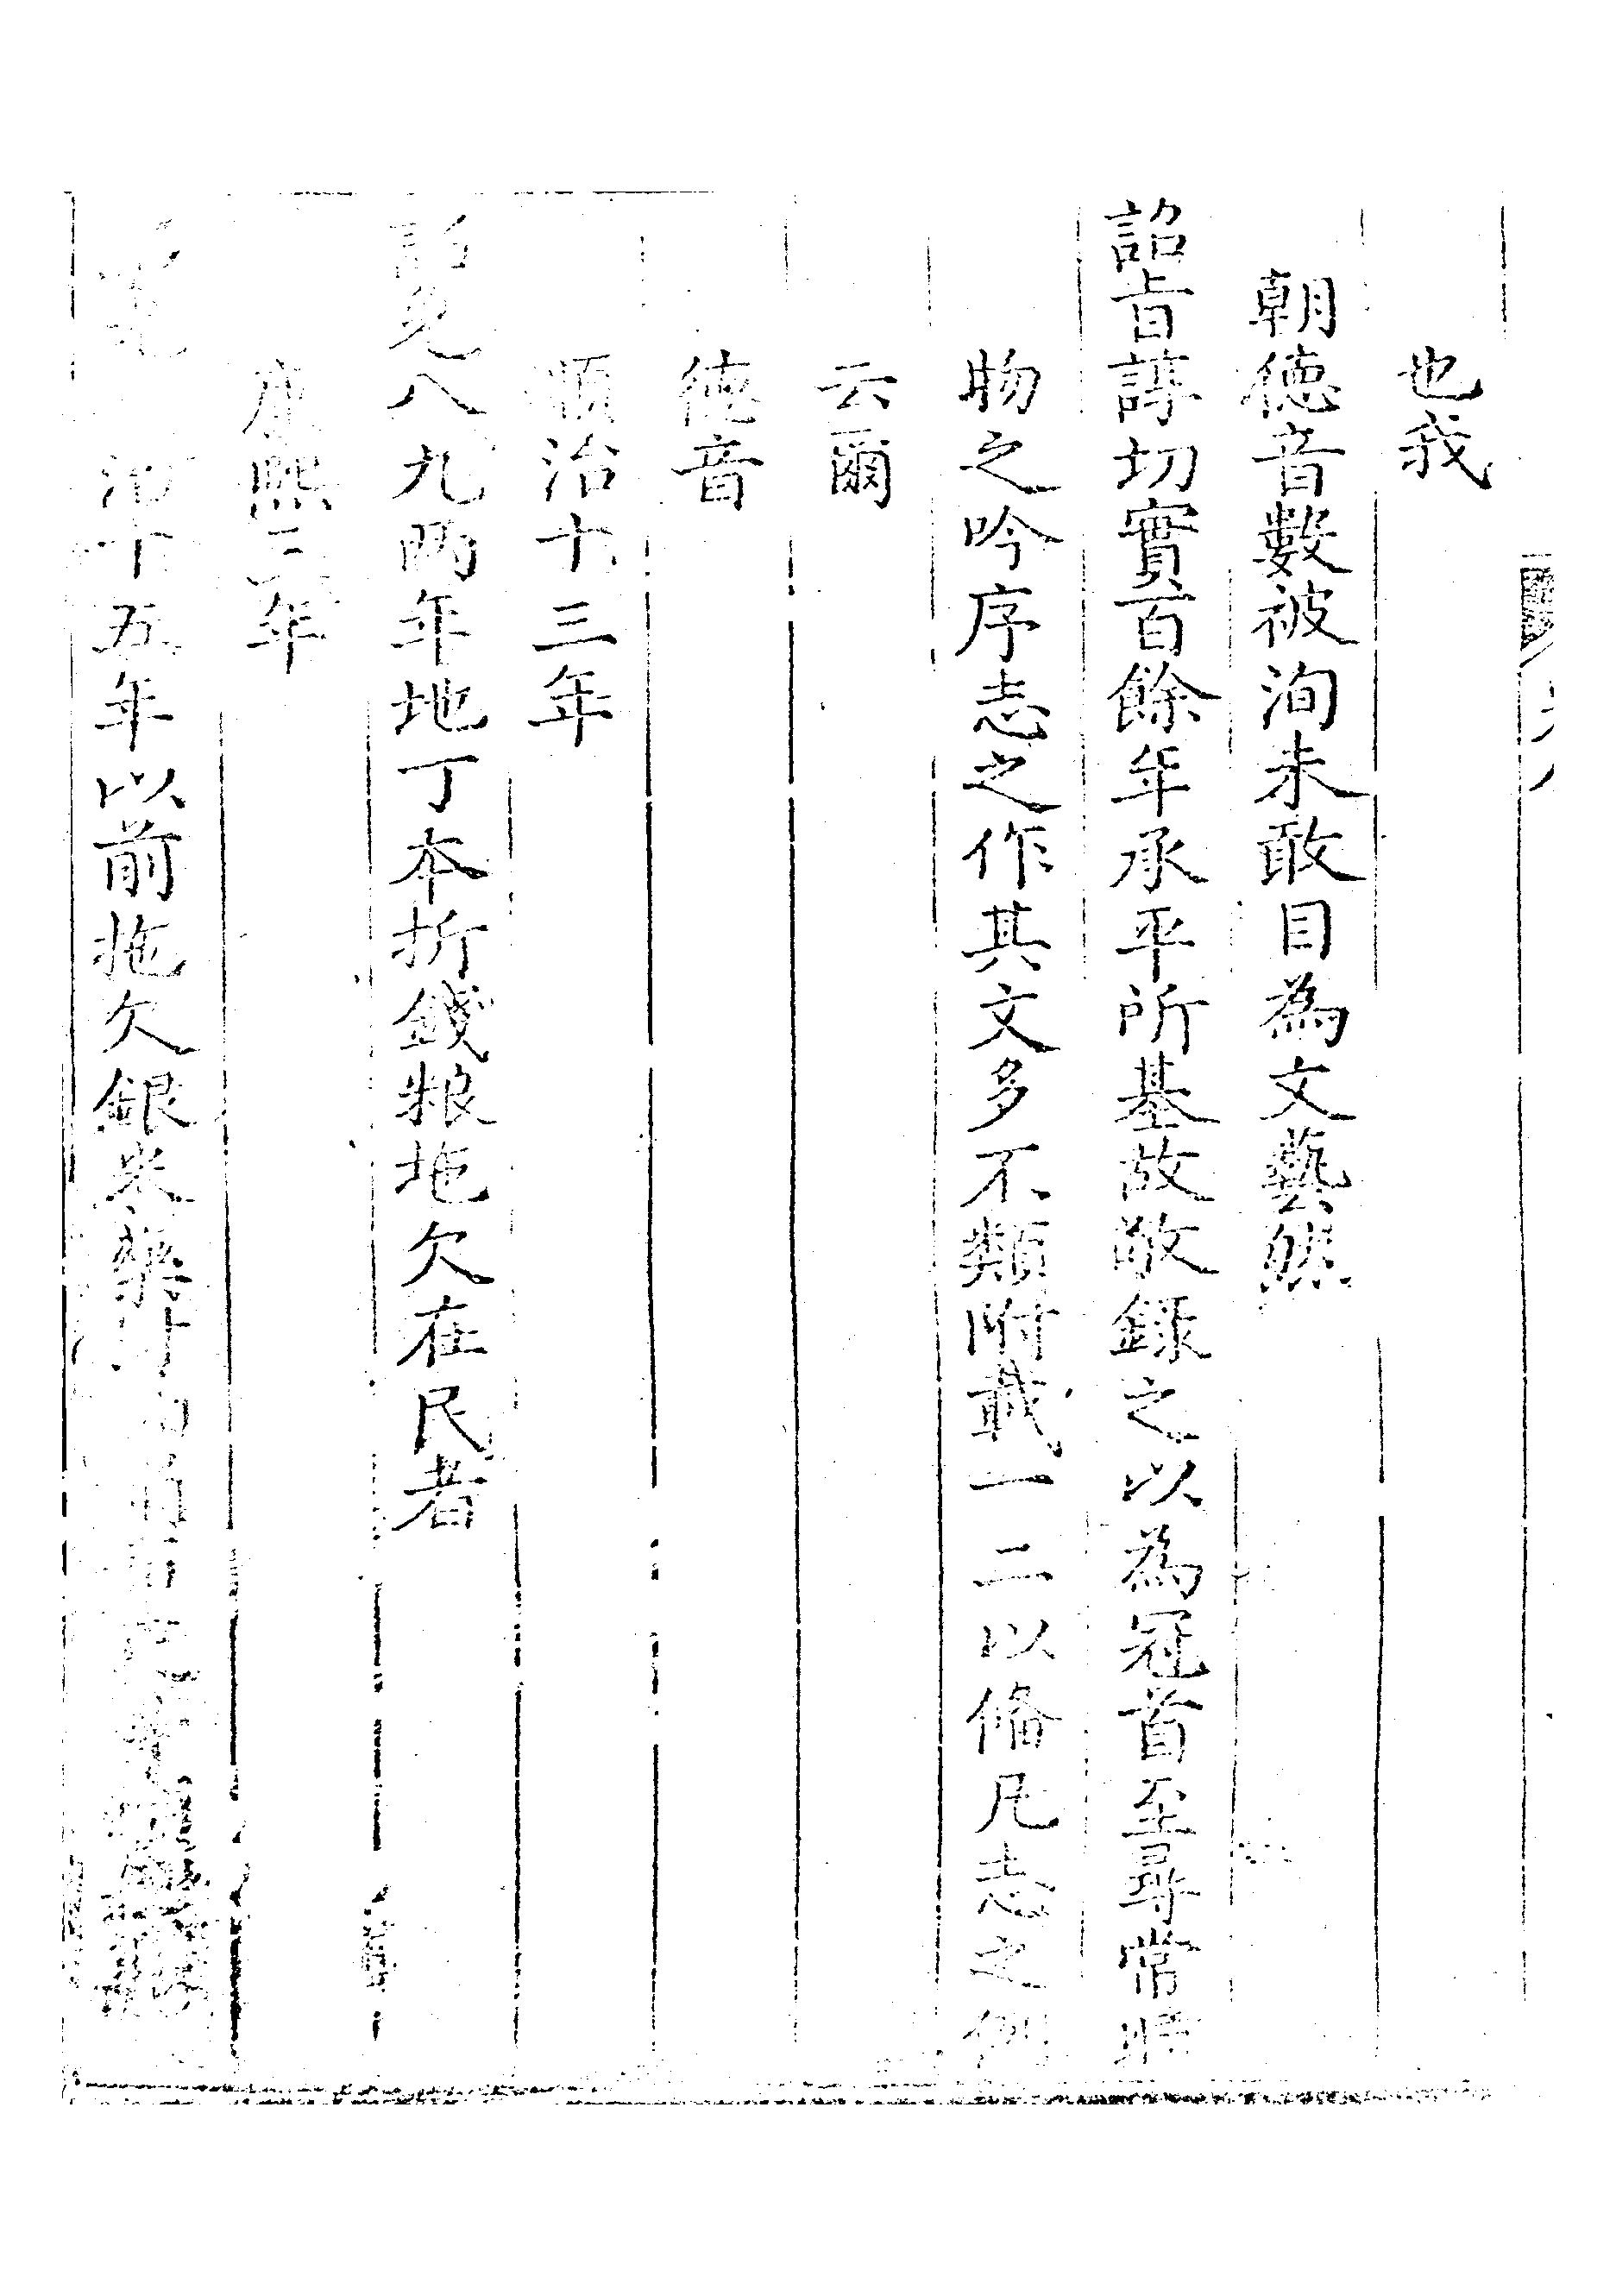 也我
朝德音數被洵未敢目為文藝然
詔旨諄切實百餘年承平所基故敬錄之以為冠首至尋常
物之吟序志之作其文多不類附載一二以俻凡志之例
云爾
德音
順治十三年
詔免八九兩年地丁本折錢粮拖欠在民者
康熙三年
治十五年以前拖欠銀米藥